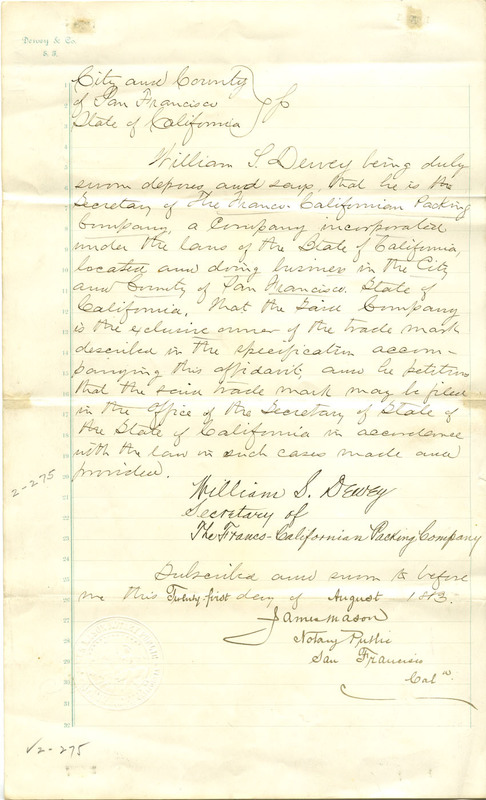 Dewey & Co.
S. F.
City and County
of San Francisco
State of California
William S. Dewey being duly
sworn deposes and says, that he is the
Secretary of The Franco-Californian Packing
Company, a Company incorporated
under the laws of the State of California,
located and doing business in the City
and County of San Francisco. State of
California. That the said Company
is the exclusive owner of the trade mark
described in the specification accom-
panying this affidavit, and he petitions
that the said trade mark may be filed
in the Office of the Secretary of State of
the State of California in accordance
with the law in such cases made and
provided.
2-275
William S. Dewey
Secretary of
The Franco-Californian Packing Company
Subscribed and sworn to before
me this Twenty-first day of August
James Mason
Notary Public
San Francisco
Cala.
2-275